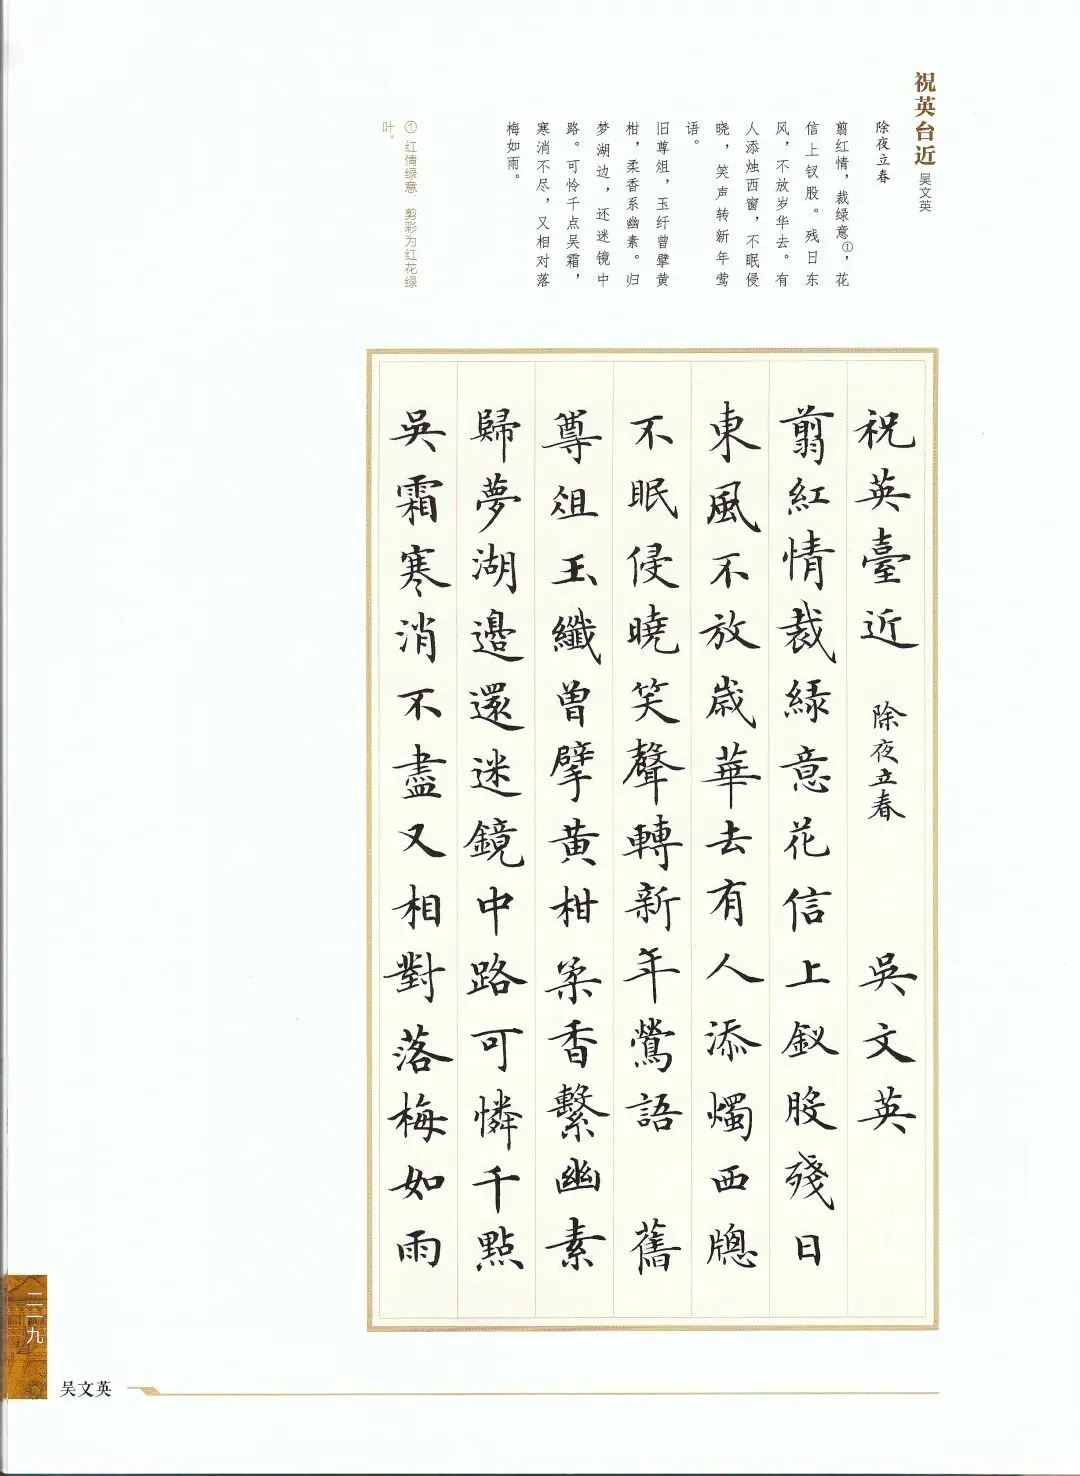 祝英台近 吴文英
除夜立春
翦红情，裁绿意①，花
信上钗股。残日东
风，不放岁华去。有
人添烛西窗，不眠侵
晓，笑声转新年莺
语。
旧尊俎，玉纤曾擘黄
柑，柔香系幽素。归
梦湖边，还迷镜中
路。可怜千点吴霜，
寒消不尽，又相对落
梅如雨。
①红情绿意 剪彩为红花绿
叶。
祝英臺近 除夜立春 吳文英
翦紅情裁緑意花信上釵股殘日
東風不放歲華去有人添燭西牕
不眠侵曉笑聲轉新年鶯語 舊
尊俎玉纖曾擘黃柑柔香繫幽素
歸夢湖邊還迷鏡中路可憐千點
吳霜寒消不盡又相對落梅如雨
二一九
吴文英